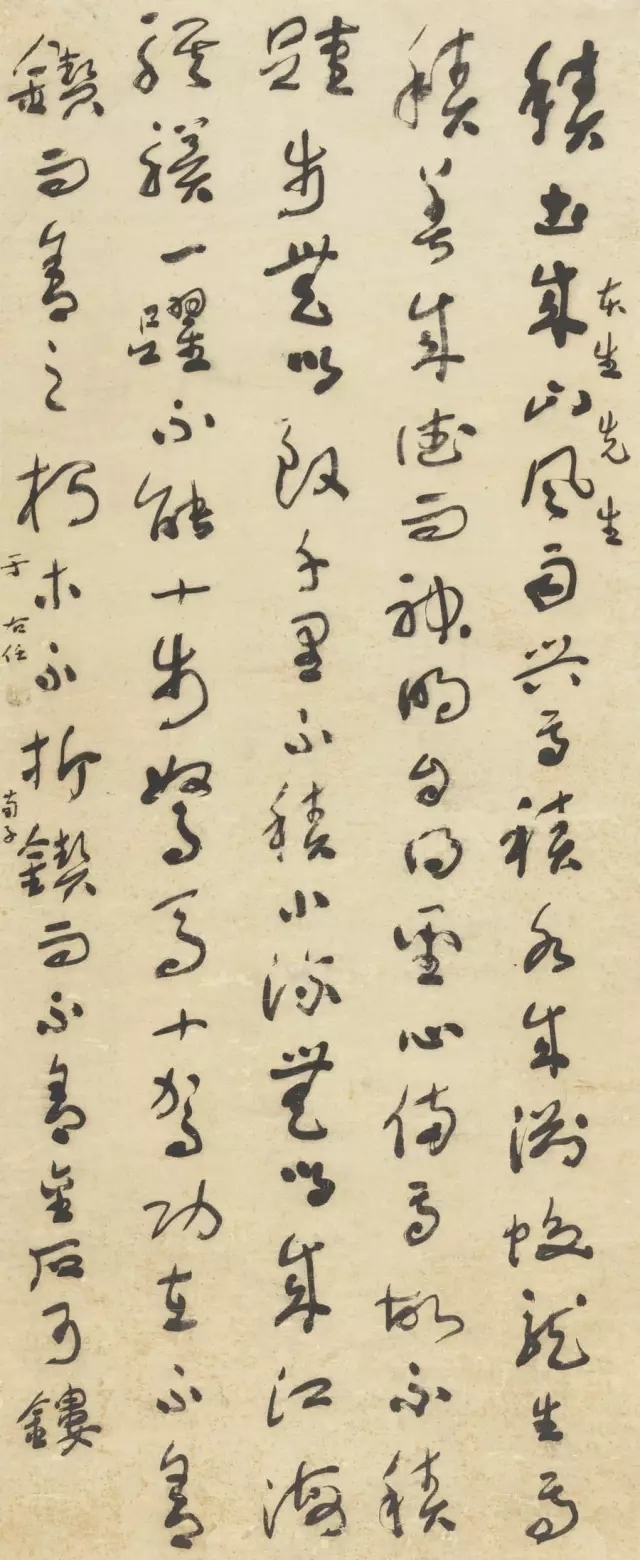 積土成山風雨興焉積水成淵蛟龍生焉
東生先生
積善成德而神明自得聖心備焉故不積
跬步無以致千里不積小流無以成江海
騏驥一躍不能十步駑馬十駕功在不舍
鍥而舍之朽木不折鍥而不舍金石可鏤
荀子
于右任